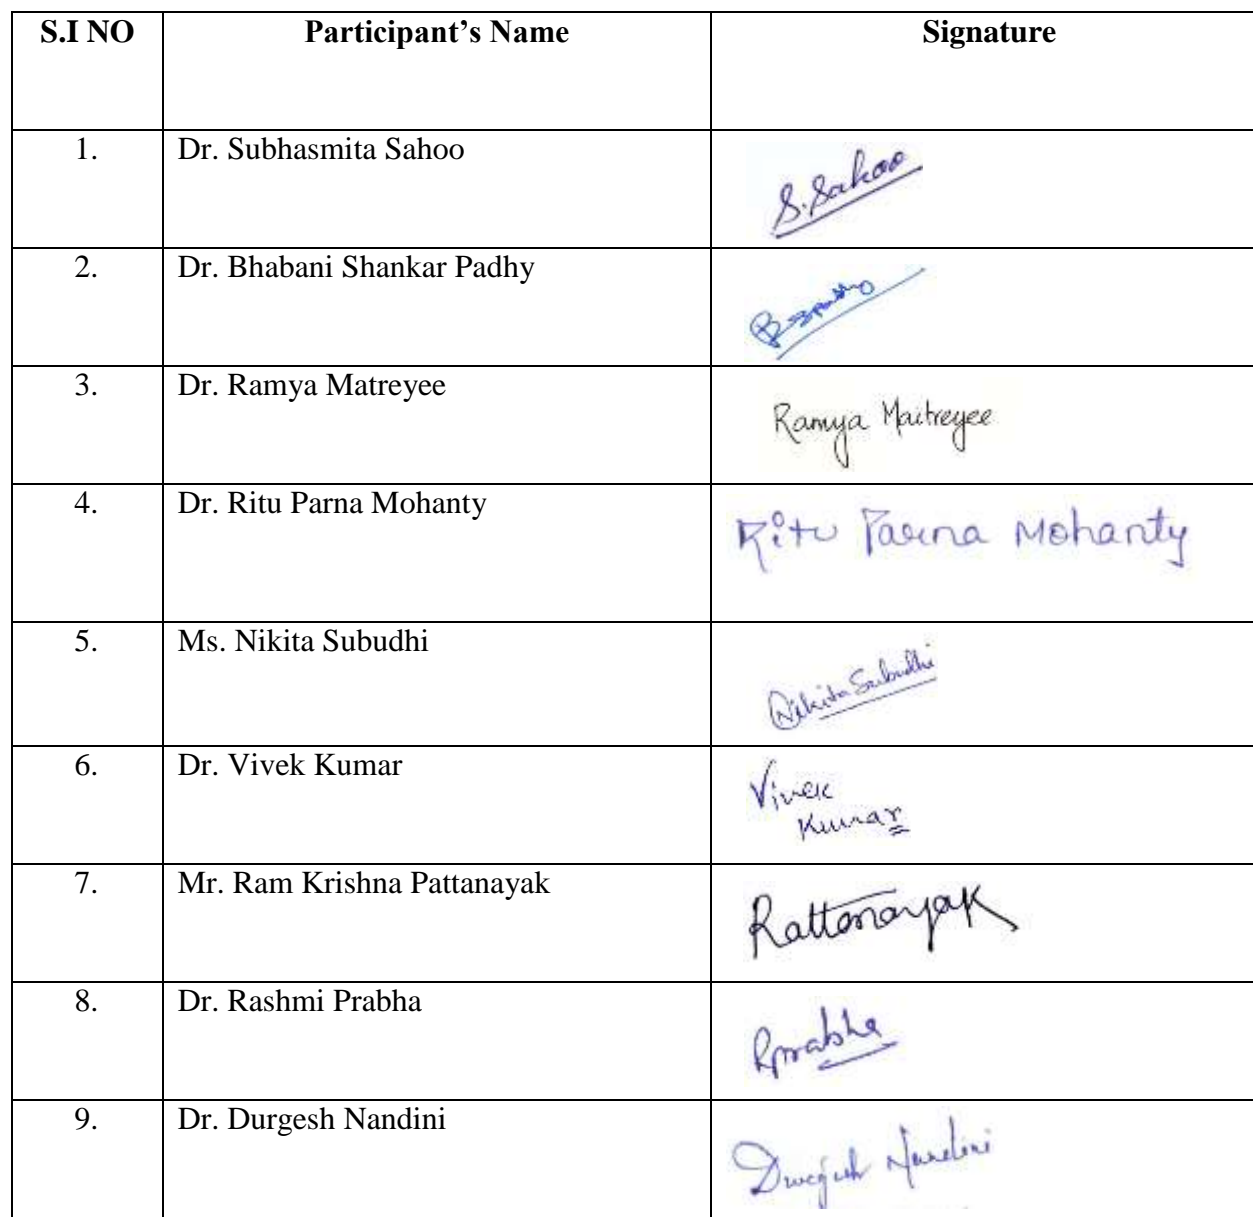 S.I NO Participant’s Name Signature
1. Dr. Subhasmita Sahoo S.Sahoo
2. Dr. Bhabani Shankar Padhy Bspadhy
3. Dr. Ramya Matreyee Ramya Maitreyee
4. Dr. Ritu Parna Mohanty Ritu Parna Mohanty
5. Ms. Nikita Subudhi Nikita Subudhi
6. Dr. Vivek Kumar Vivek
Kumar
7. Mr. Ram Krishna Pattanayak Rattanayak
8. Dr. Rashmi Prabha Rprabha
9. Dr. Durgesh Nandini Durgesh Nandini